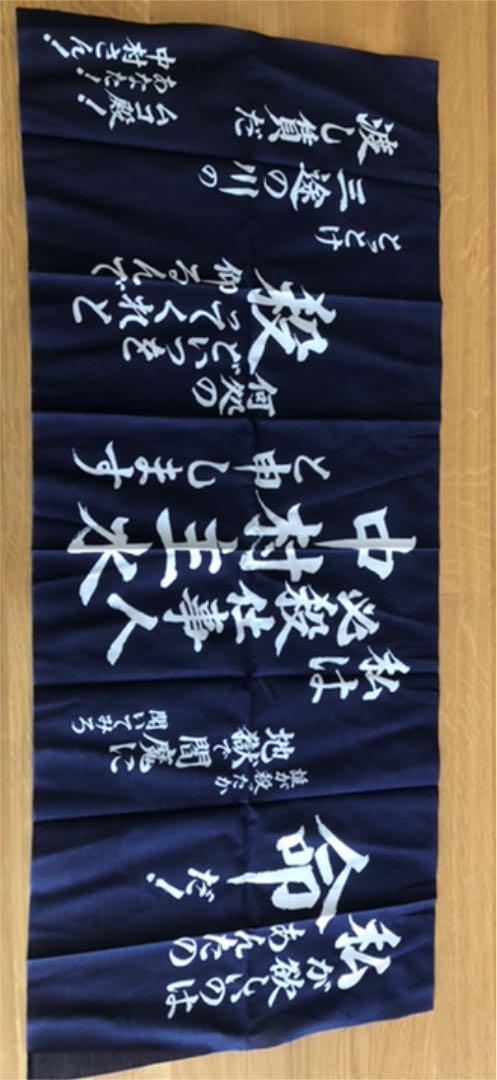 私が欲しいのは
あんたの
命だ!
誰が殺ったか
地獄で閻魔に
聞いてみろ
私は
必殺仕事人
中村主水
と申します
何処の
どいつを
殺ってくれと
仰るんで
とっとけ
三途の川の
渡し賃だ
ムコ殿!
あなた!
中村さん!